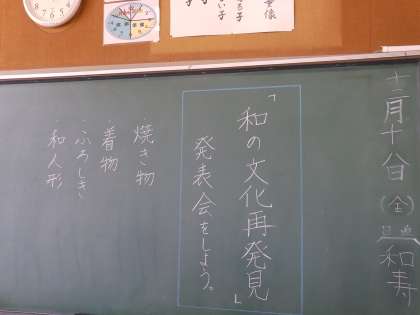 十二月十八日(金)
和寿
「和の文化再発見」
発表会をしよう。
・焼き物
・着物
・ふろしき
・和人形
る子
い子